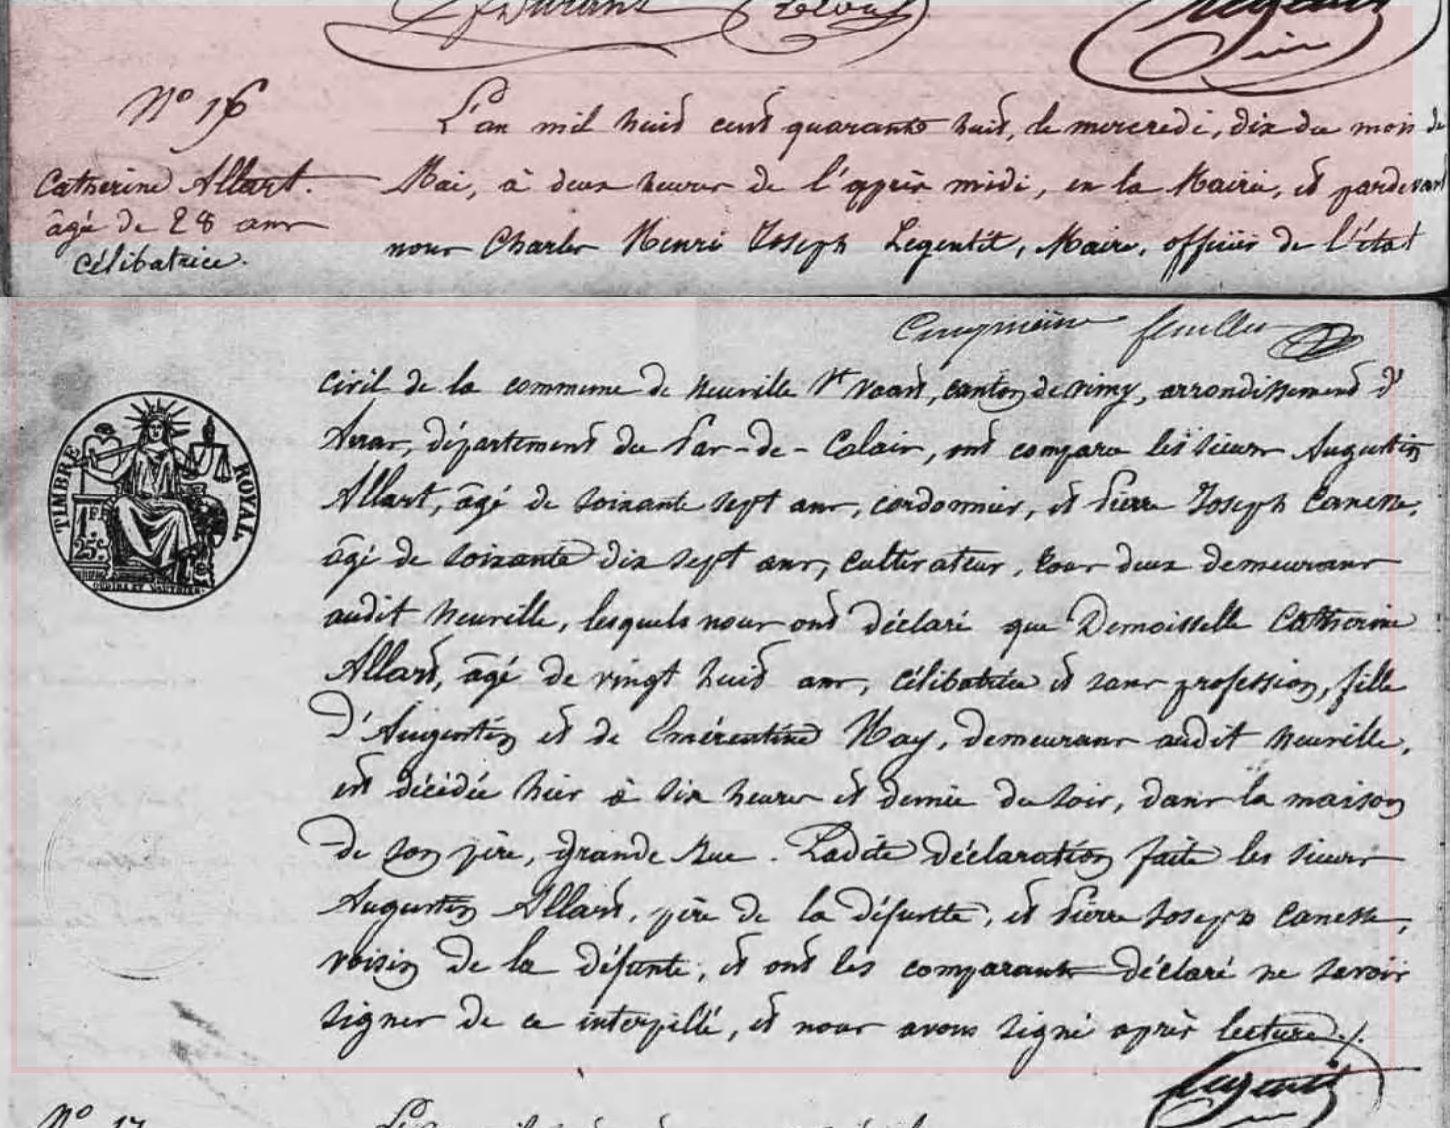 Durant
Legentil
N° 16
Catherine Allart.
âgé de 28 ans
célibatrice.
L'an mil huit cent quarante huit, le mercredi, dix du mois de
Mai, à deux heures de l'après midi, en la Mairie, et pardevant
nous Charles Henri Joseph Legentil, Maire, officier de l'état
Cinquième feuillet
civil de la commune de Neuville St Vaast, canton de Vimy, arrondissement d'
Arras, département du Pas-de-Calais, ont comparu les sieurs Augustin
Allart, âgé de soixante sept ans, cordonnier, et Pierre Joseph Canesse,
âgé de soixante dix sept ans, cultivateur, tous deux demeurans
audit Neuville, lesquels nous ont déclaré que Demoiselle Catherine
Allart, âgé de vingt huit ans, célibatrice et sans profession, fille
d'Augustin et de Emérentine May, demeurans audit Neuville,
est décédée hier à six heures et demie du soir, dans la maison
de son père, grande Rue. Ladite déclaration faite les sieurs
Augustin Allart, père de la défunte, et Pierre Joseph Canesse,
voisin de la défunte, et ont les comparants déclaré ne savoir
signer de ce interpellé, et nous avons signé après lecture./.
TIMBRE ROYAL
1F
25c
Legentil
N° 17